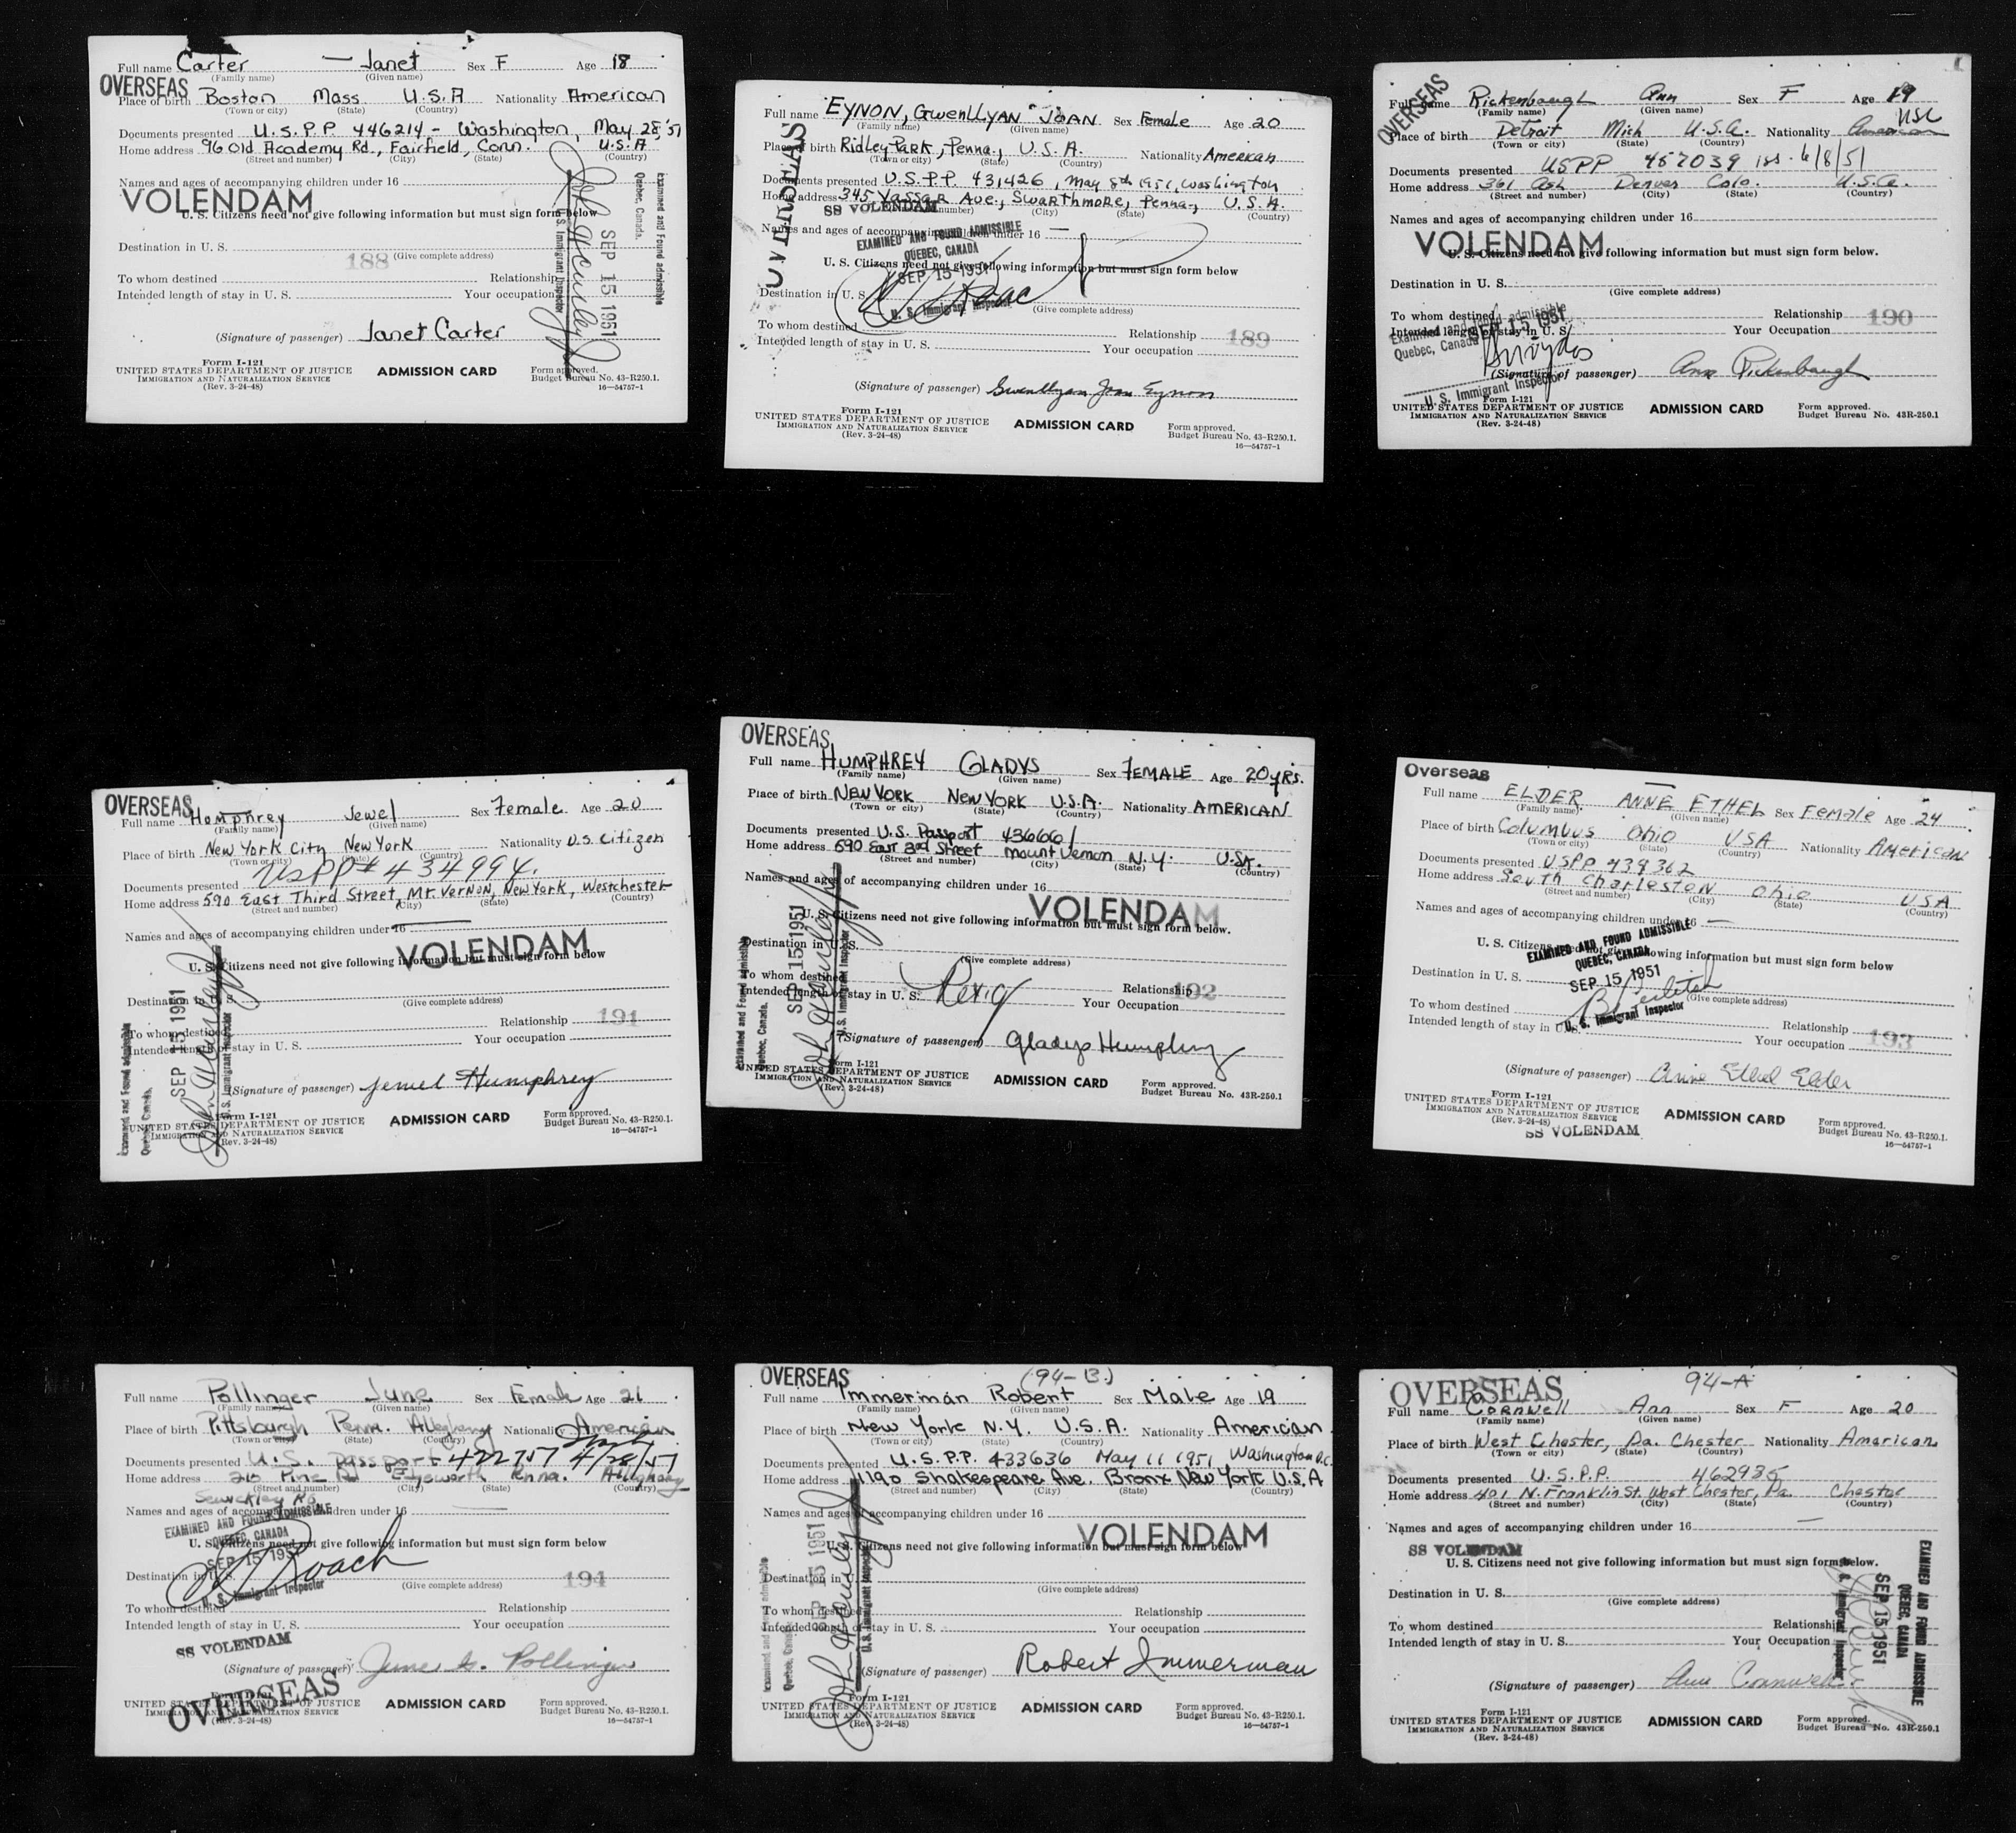 OVERSEAS
Full name Carter — Janet Sex F Age 18
(Family name) (Given name)
Place of birth Boston Mass U.S.A Nationality American
(Town or city) (State) (Country)
Documents presented U.S.P.P 446214 - Washington, May 28, '51
Home address 96 Old Academy Rd., Fairfield, Conn. U.S.A
(Street and number) (City) (State) (Country)
Names and ages of accompanying children under 16
VOLENDAM
U. S. Citizens need not give following information but must sign form below
Destination in U. S.
188 (Give complete address)
To whom destined Relationship
Intended length of stay in U. S. Your occupation
(Signature of passenger) Janet Carter
Form I-121
UNITED STATES DEPARTMENT OF JUSTICE
IMMIGRATION AND NATURALIZATION SERVICE
(Rev. 3-24-48)
ADMISSION CARD
Form approved.
Budget Bureau No. 43-R250.1.
16—54757-1
Examined and Found admissible
Quebec, Canada.
SEP 15 1951
U. S. Immigrant Inspector
OVERSEAS
Full name EYNON, GWENLLYAN JOAN Sex Female Age 20
(Family name) (Given name)
Place of birth Ridley Park, Penna., U.S.A. Nationality American
(Town or city) (State) (Country)
Documents presented U.S.P.P. 431426, May 8th 1951, Washington
Home address 345 Vassar Ave., Swarthmore, Penna., U.S.A.
SS VOLENDAM (City) (State) (Country)
Names and ages of accompanying children under 16 —
EXAMINED AND FOUND ADMISSIBLE
QUEBEC, CANADA
U. S. Citizens need not give following information but must sign form below
SEP 15 1951
Destination in U. S.
U. S. Immigrant Inspector (Give complete address)
To whom destined Relationship 189
Intended length of stay in U. S. Your occupation
(Signature of passenger) Gwenllyan Joan Eynon
Form I-121
UNITED STATES DEPARTMENT OF JUSTICE
IMMIGRATION AND NATURALIZATION SERVICE
(Rev. 3-24-48)
ADMISSION CARD
Form approved.
Budget Bureau No. 43-R250.1.
16—54757-1
OVERSEAS
Full name Rickenbaugh Ann Sex F Age 19
(Family name) (Given name)
USC
Place of birth Detroit Mich U.S.A. Nationality American
(Town or city) (State) (Country)
Documents presented USPP 457039 iss. 6/8/51
Home address 361 Ash Denver Colo. U.S.A.
(Street and number) (City) (State) (Country)
Names and ages of accompanying children under 16
VOLENDAM
U. S. Citizens need not give following information but must sign form below.
Destination in U. S.
(Give complete address)
To whom destined Relationship 190
Intended length of stay in U. S. Your Occupation
Examined and found admissible
Quebec, Canada SEP 15 1951
(Signature of passenger) Ann Rickenbaugh
U. S. Immigrant Inspector
Form I-121
UNITED STATES DEPARTMENT OF JUSTICE
IMMIGRATION AND NATURALIZATION SERVICE
(Rev. 3-24-48)
ADMISSION CARD
Form approved.
Budget Bureau No. 43R-250.1
OVERSEAS
Full name Humphrey Jewel Sex Female Age 20
(Family name) (Given name)
Place of birth New York City New York Nationality U.S. Citizen
(Town or city) (State) (Country)
Documents presented USPP # 434994.
Home address 590 East Third Street, Mt. Vernon, New York, Westchester
(Street and number) (City) (State) (Country)
Names and ages of accompanying children under 16
VOLENDAM
U. S. Citizens need not give following information but must sign form below
Destination in U. S.
(Give complete address)
To whom destined Relationship 191
Intended length of stay in U. S. Your occupation
(Signature of passenger) Jewel Humphrey
Form I-121
UNITED STATES DEPARTMENT OF JUSTICE
IMMIGRATION AND NATURALIZATION SERVICE
(Rev. 3-24-48)
ADMISSION CARD
Form approved.
Budget Bureau No. 43-R250.1.
16—54757-1
Examined and Found admissible
Quebec, Canada.
SEP 15 1951
U. S. Immigrant Inspector
OVERSEAS
Full name HUMPHREY GLADYS Sex FEMALE Age 20 yrs.
(Family name) (Given name)
Place of birth NEW YORK NEW YORK U.S.A. Nationality AMERICAN
(Town or city) (State) (Country)
Documents presented U.S. Passport 436661
Home address 590 East 3rd Street Mount Vernon N.Y. U.S.A.
(Street and number) (City) (State) (Country)
Names and ages of accompanying children under 16
VOLENDAM
U. S. Citizens need not give following information but must sign form below.
Destination in U. S.
(Give complete address)
To whom destined Relationship 192
Intended length of stay in U. S. Your Occupation
(Signature of passenger) Gladys Humphrey
Form I-121
UNITED STATES DEPARTMENT OF JUSTICE
IMMIGRATION AND NATURALIZATION SERVICE
(Rev. 3-24-48)
ADMISSION CARD
Form approved.
Budget Bureau No. 43R-250.1
Examined and Found admissible
Quebec, Canada.
SEP 15 1951
U. S. Immigrant Inspector
Overseas
Full name ELDER ANNE ETHEL Sex Female Age 24
(Family name) (Given name)
Place of birth Columbus Ohio USA Nationality American
(Town or city) (State) (Country)
Documents presented USPP 439362
Home address South Charleston Ohio USA
(Street and number) (City) (State) (Country)
Names and ages of accompanying children under 16 —
EXAMINED AND FOUND ADMISSIBLE
QUEBEC, CANADA
U. S. Citizens need not give following information but must sign form below
SEP 15 1951
Destination in U. S.
(Give complete address)
U. S. Immigrant Inspector
To whom destined Relationship 193
Intended length of stay in U. S. Your occupation
(Signature of passenger) Anne Ethel Elder
Form I-121
UNITED STATES DEPARTMENT OF JUSTICE
IMMIGRATION AND NATURALIZATION SERVICE
(Rev. 3-24-48)
SS VOLENDAM
ADMISSION CARD
Form approved.
Budget Bureau No. 43-R250.1.
16—54757-1
Full name Pollinger June Sex Female Age 21
(Family name) (Given name)
Place of birth Pittsburgh Penn. Allegheny Nationality American
(Town or city) (State) (Country)
Documents presented U.S. Passport 422757 4/28/51
Home address 210 Pine Rd Edgworth Penna. Allegheny
(Street and number) (City) (State) (Country)
Sewickley
Names and ages of accompanying children under 16 —
EXAMINED AND FOUND ADMISSIBLE
QUEBEC, CANADA
U. S. Citizens need not give following information but must sign form below
SEP 15 1951
Destination in U. S. 194
(Give complete address)
U. S. Immigrant Inspector
To whom destined Relationship
Intended length of stay in U. S. Your occupation
SS VOLENDAM
(Signature of passenger) June G. Pollinger
OVERSEAS
Form I-121
UNITED STATES DEPARTMENT OF JUSTICE
IMMIGRATION AND NATURALIZATION SERVICE
(Rev. 3-24-48)
ADMISSION CARD
Form approved.
Budget Bureau No. 43-R250.1.
16—54757-1
OVERSEAS (94-B.)
Full name Immerman Robert Sex Male Age 19
(Family name) (Given name)
Place of birth New York N.Y. U.S.A. Nationality American
(Town or city) (State) (Country)
Documents presented U.S.P.P. 433636 May 11 1951 Washington D.C.
Home address 1190 Shakespeare Ave. Bronx New York U.S.A
(Street and number) (City) (State) (Country)
Names and ages of accompanying children under 16
VOLENDAM
U. S. Citizens need not give following information but must sign form below
Destination in U. S.
(Give complete address)
To whom destined Relationship
Intended length of stay in U. S. Your occupation
(Signature of passenger) Robert Immerman
Form I-121
UNITED STATES DEPARTMENT OF JUSTICE
IMMIGRATION AND NATURALIZATION SERVICE
(Rev. 3-24-48)
ADMISSION CARD
Form approved.
Budget Bureau No. 43-R250.1.
16—54757-1
Examined and Found admissible
Quebec, Canada.
SEP 15 1951
U. S. Immigrant Inspector
OVERSEAS 94-A
Full name Cornwell Ann Sex F Age 20
(Family name) (Given name)
Place of birth West Chester, Pa. Chester Nationality American
(Town or city) (State) (Country)
Documents presented U.S.P.P. 462935
Home address 401 N. Franklin St. West Chester, Pa. Chester
(Street and number) (City) (State) (Country)
Names and ages of accompanying children under 16 —
SS VOLENDAM
U. S. Citizens need not give following information but must sign form below.
Destination in U. S.
(Give complete address)
To whom destined Relationship
Intended length of stay in U. S. Your Occupation
(Signature of passenger) Ann Cornwell
Form I-121
UNITED STATES DEPARTMENT OF JUSTICE
IMMIGRATION AND NATURALIZATION SERVICE
(Rev. 3-24-48)
ADMISSION CARD
Form approved.
Budget Bureau No. 43R-250.1
EXAMINED AND FOUND ADMISSIBLE
QUEBEC, CANADA
SEP 15 1951
U. S. Immigrant Inspector